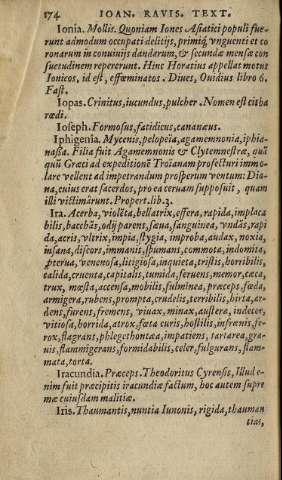 174 IOAN. RAVIS. TEXT.
Ionia. Mollis. Quoniam Iones Asiatici populi fue-
runt admodum occupati delitijs, primiq́; vnguenti et co
ronarum in conuiuijs dandarum, & secundæ mensæ con
suetudinem repererunt. Hinc Horatius appellat motus
Ionicos, id est, effœminatos. Diues, Ouidius libro 6.
Fast.
Iopas. Crinitus, iucundus, pulcher. Nomen est citha
rœdi.
Ioseph. Formosus, fatidicus, cananæus.
Iphigenia. Mycenis, pelopeia, agamemnonia, iphia-
nassa. Filia fuit Agamemnonis & Clytemnestræ, quā
quū Græci ad expeditionē Troianam profecturi immo
lare vellent ad impetrandum prosperum ventum: Dia-
na, cuius erat sacerdos, pro ea ceruam supposuit, quam
illi victimârunt. Propert. lib. 3.
Ira. Acerba, violēta, bellatrix, effera, rapida, implaca
bilis, bacchās, odij parens, sæua, sanguinea, vndās, rapi
da, acris, vltrix, impia, stygia, improba, audax, noxia,
insana, discors, immanis, spumans, commota, indomita,
pterua, venenosa, litigiosa, inquieta, tristis, horribilis,
calida, cruenta, capitalis, tumida, feruens, memor, cæca,
trux, mœsta, accensa, mobilis, fulminea, præceps, fœda,
armigera, rubens, prompta, crudelis, terribilis, hirta, ar-
dens, furens, fremens, viuax, minax, austera, indecēs,
vitiosa, horrida, atrox, fœta curis, hostilis, infrænis, fe-
rox, flagrans, phlegethontæa, impatiens, tartarea, gra-
uis, flammigerans, formidabilis, celer, fulgurans, flam-
mata, torta.
Iracundia. Præceps. Theodoritus Cyrensis, Illud e-
nim fuit præcipitis iracundiæ factum, hoc autem supre
mæ cuiusdam malitiæ.
Iris. Thaumantis, nuntia Iunonis, rigida, thauman
tias,